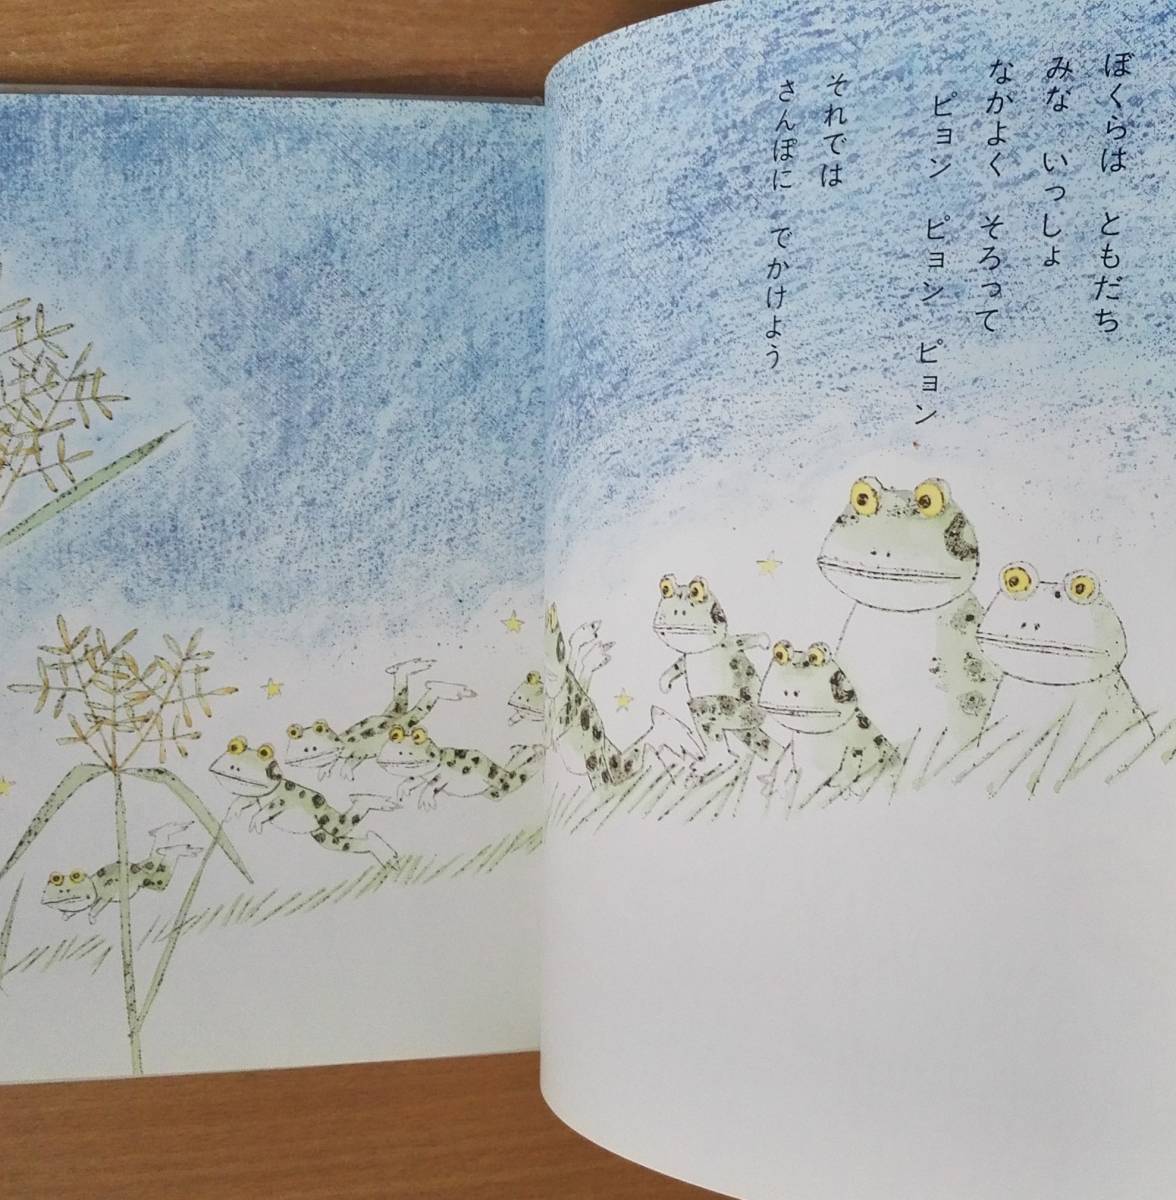 ぼくらは ともだち
みな いっしょ
なかよく そろって
ピョン ピョン ピョン
それでは
さんぽに でかけよう